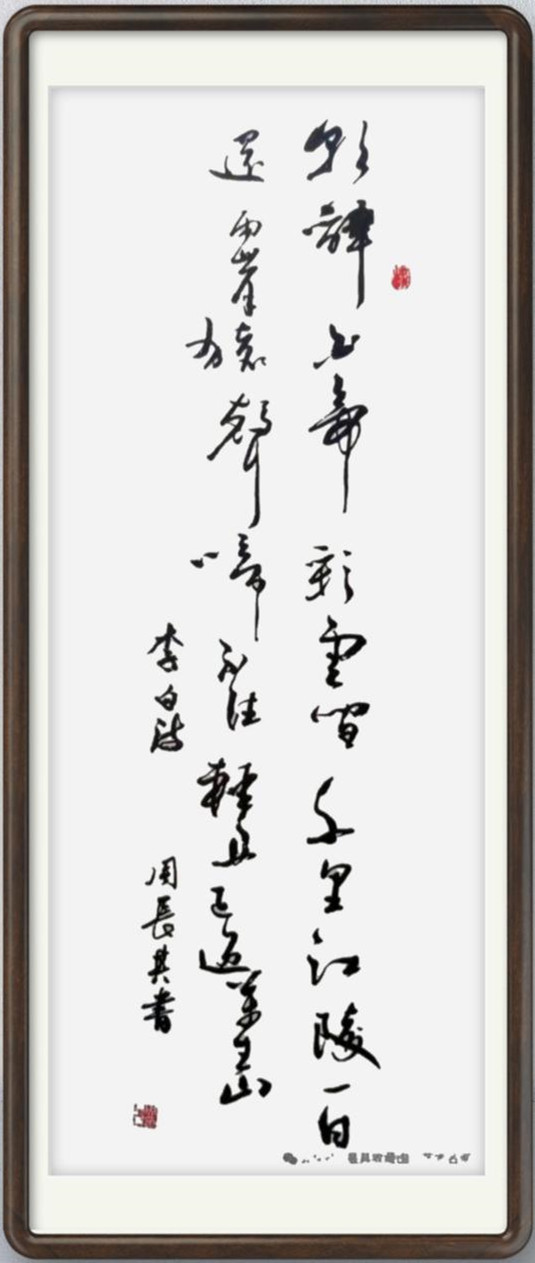 朝辭白帝彩雲間千里江陵一日
還兩岸猿聲啼不住輕舟已過萬重山
李白詩
周長其書